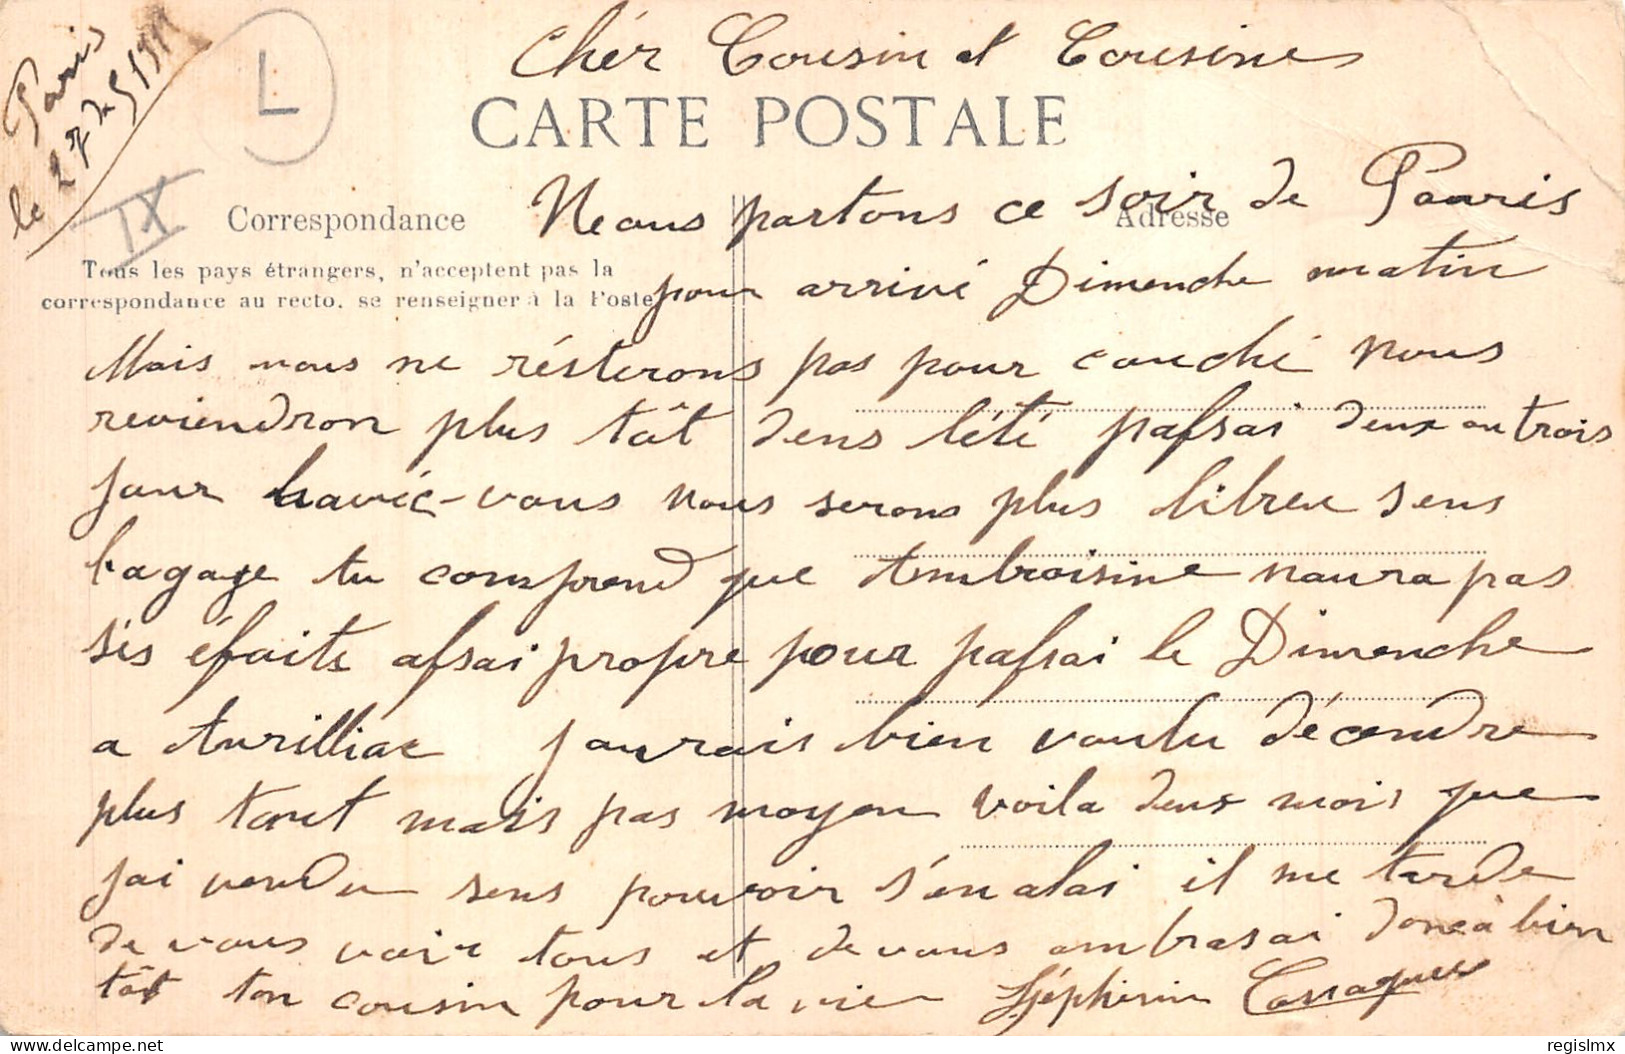 Paris
le 27
L
IX
Chér Cousin et Cousine
CARTE POSTALE
Correspondance
Adresse
Tous les pays étrangers, n'acceptent pas la
correspondance au recto. se renseigner à la Poste
Nous partons ce soir de Paris
pour arrivé Dimenche matin
Mais nous ne résterons pas pour couché nous
reviendron plus tât dens l'été passai deux ou trois
jour havéc-vous nous serons plus libreu sens
bagage tu comprend que Ambroisine naura pas
sés éfaits assai propre pour passai le Dimenche
a Aurilliac jaurais bien voulu décendre
plus taret mais pas moyen voila deux mois que
jai vendu sens pouvoir s'en alai il me tarde
de vous voir tous et de vous ambrasai donc à bien
tât ton cousin pour la vie Zéphirin
delcampe.net
regislmx